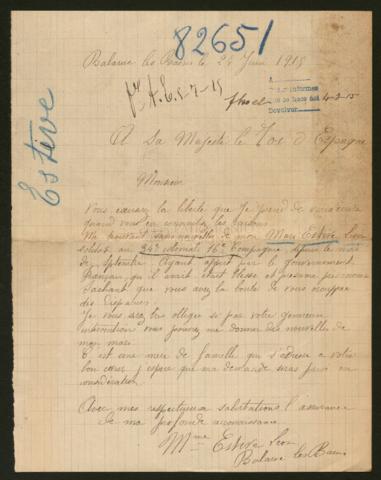 82651
Balaruc les Bains le 24 Juin 1915
4-2-15
Devolver
Estève
A Sa Majesté le Roi d'Espagne
Monsieur
Vous excuserez la liberté que je prend de vous écrire
quand vous en connaitrez les raisons.
Me trouvant sans nouvelles de mon Mari Estève Léon
soldat au 24e Colonial 16e Compagnie depuis le mois
de Septembre Ayant appris par le Gouvernement
Français qu'il avait était Blessé et présumé prisonnier
Sachant que vous avez la bonté de vous occuper
des Disparus.
Je vous serez bien obligée si par votre généreuse
intervention vous pouvez me donner des nouvelles de
mon mari.
C'est une mère de famille qui s'adresse a votre
bon cœur j'espère que ma demande sera prise en
considération.
Avec mes respectueuses salutations l'assurance
de ma profonde reconnaissance
Mme Estève Léon
Balaruc les Bains